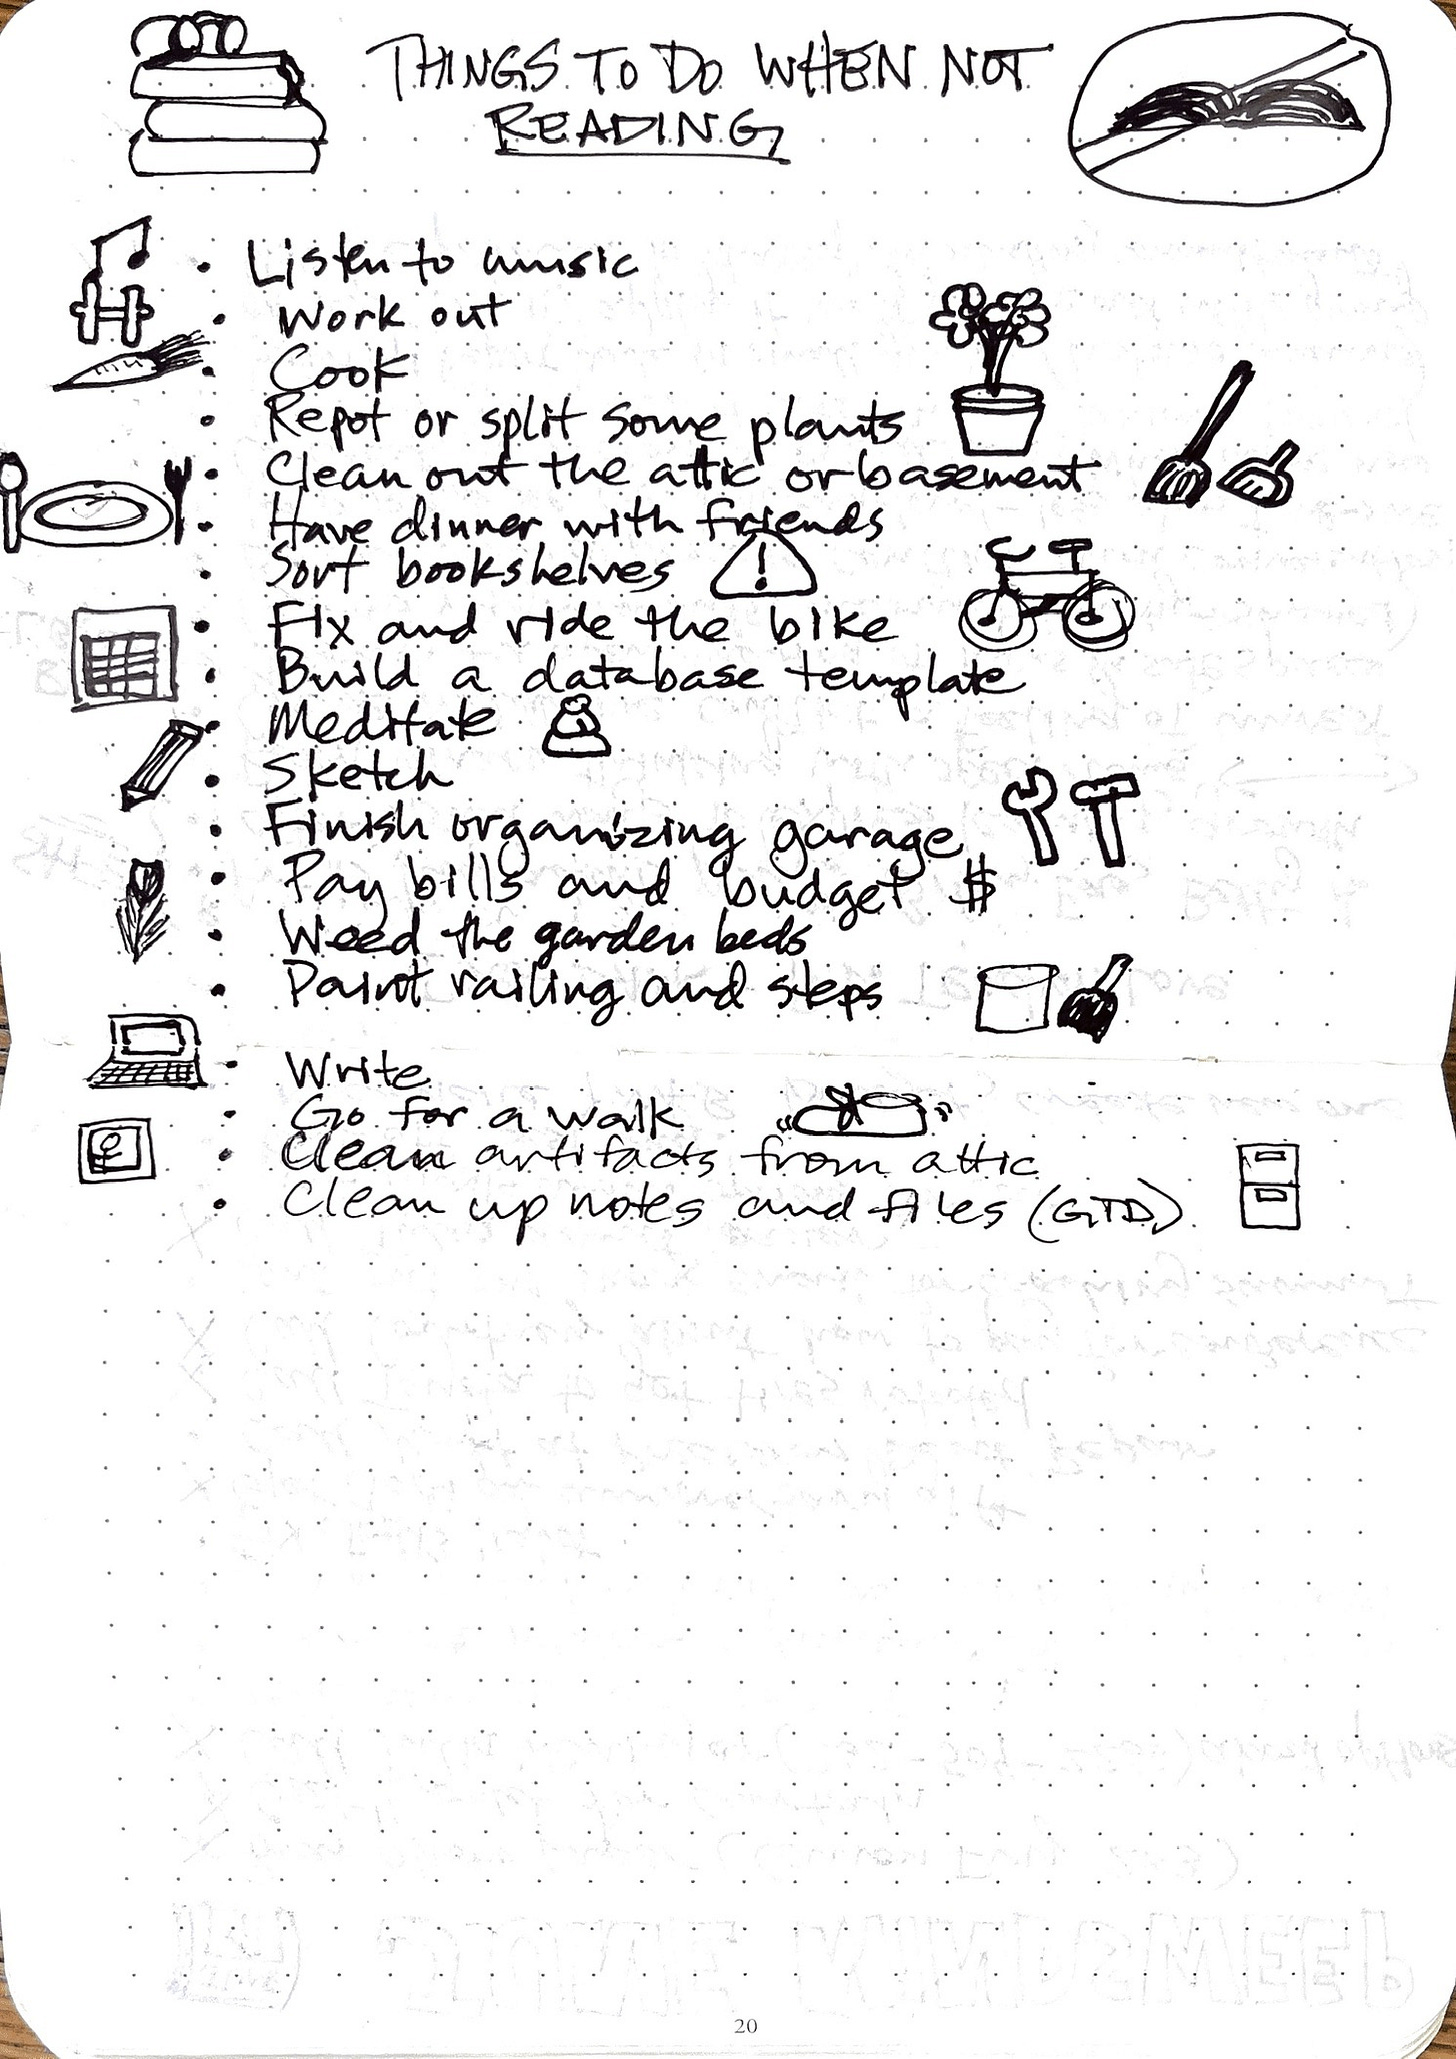 THINGS TO DO WHEN NOT
READING
• Listen to music
• Work out
• Cook
• Repot or split some plants
• Clean out the attic or basement
• Have dinner with friends
• Sort bookshelves !
• Fix and ride the bike
• Build a database template
• Meditate
• Sketch
• Finish organizing garage
• Pay bills and budget $
• Weed the garden beds
• Paint railing and steps
• Write
• Go for a walk
• Clean artifacts from attic
• Clean up notes and files (GTD)
20